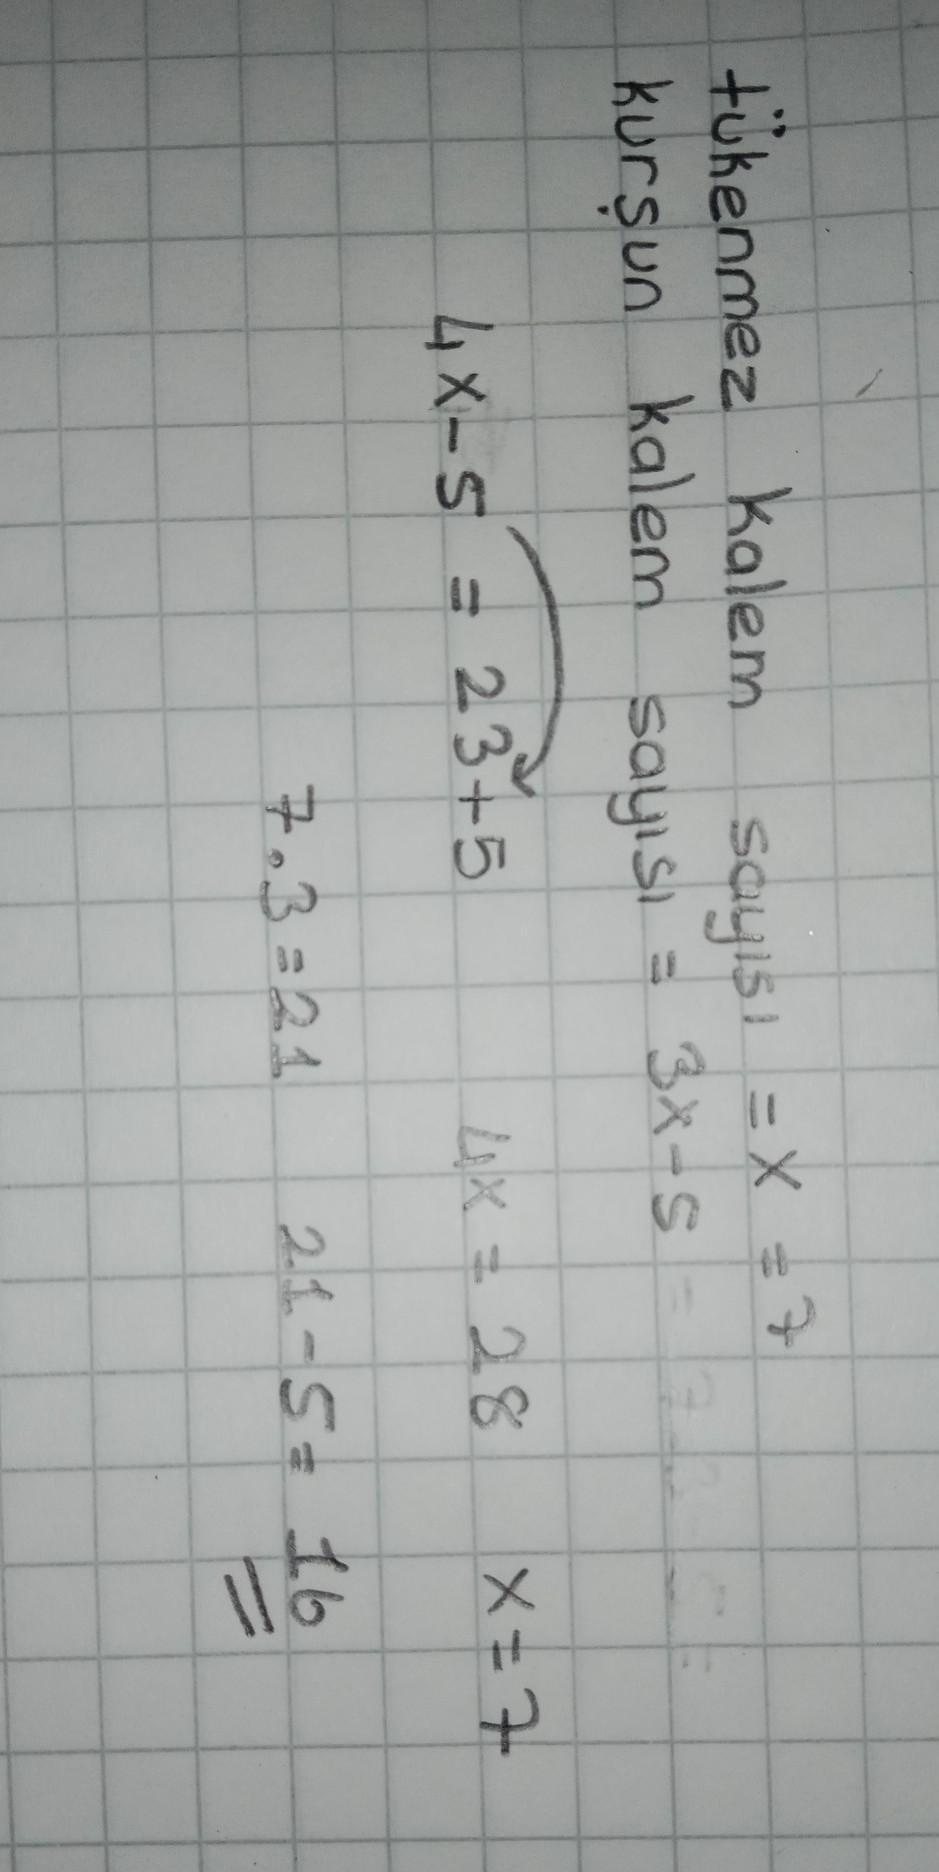 tükenmez kalem sayısı = x = 7
kurşun kalem sayısı = 3x-5
4x-5 = 23+5 4x = 28 x = 7
7.3=21 21-5= 16